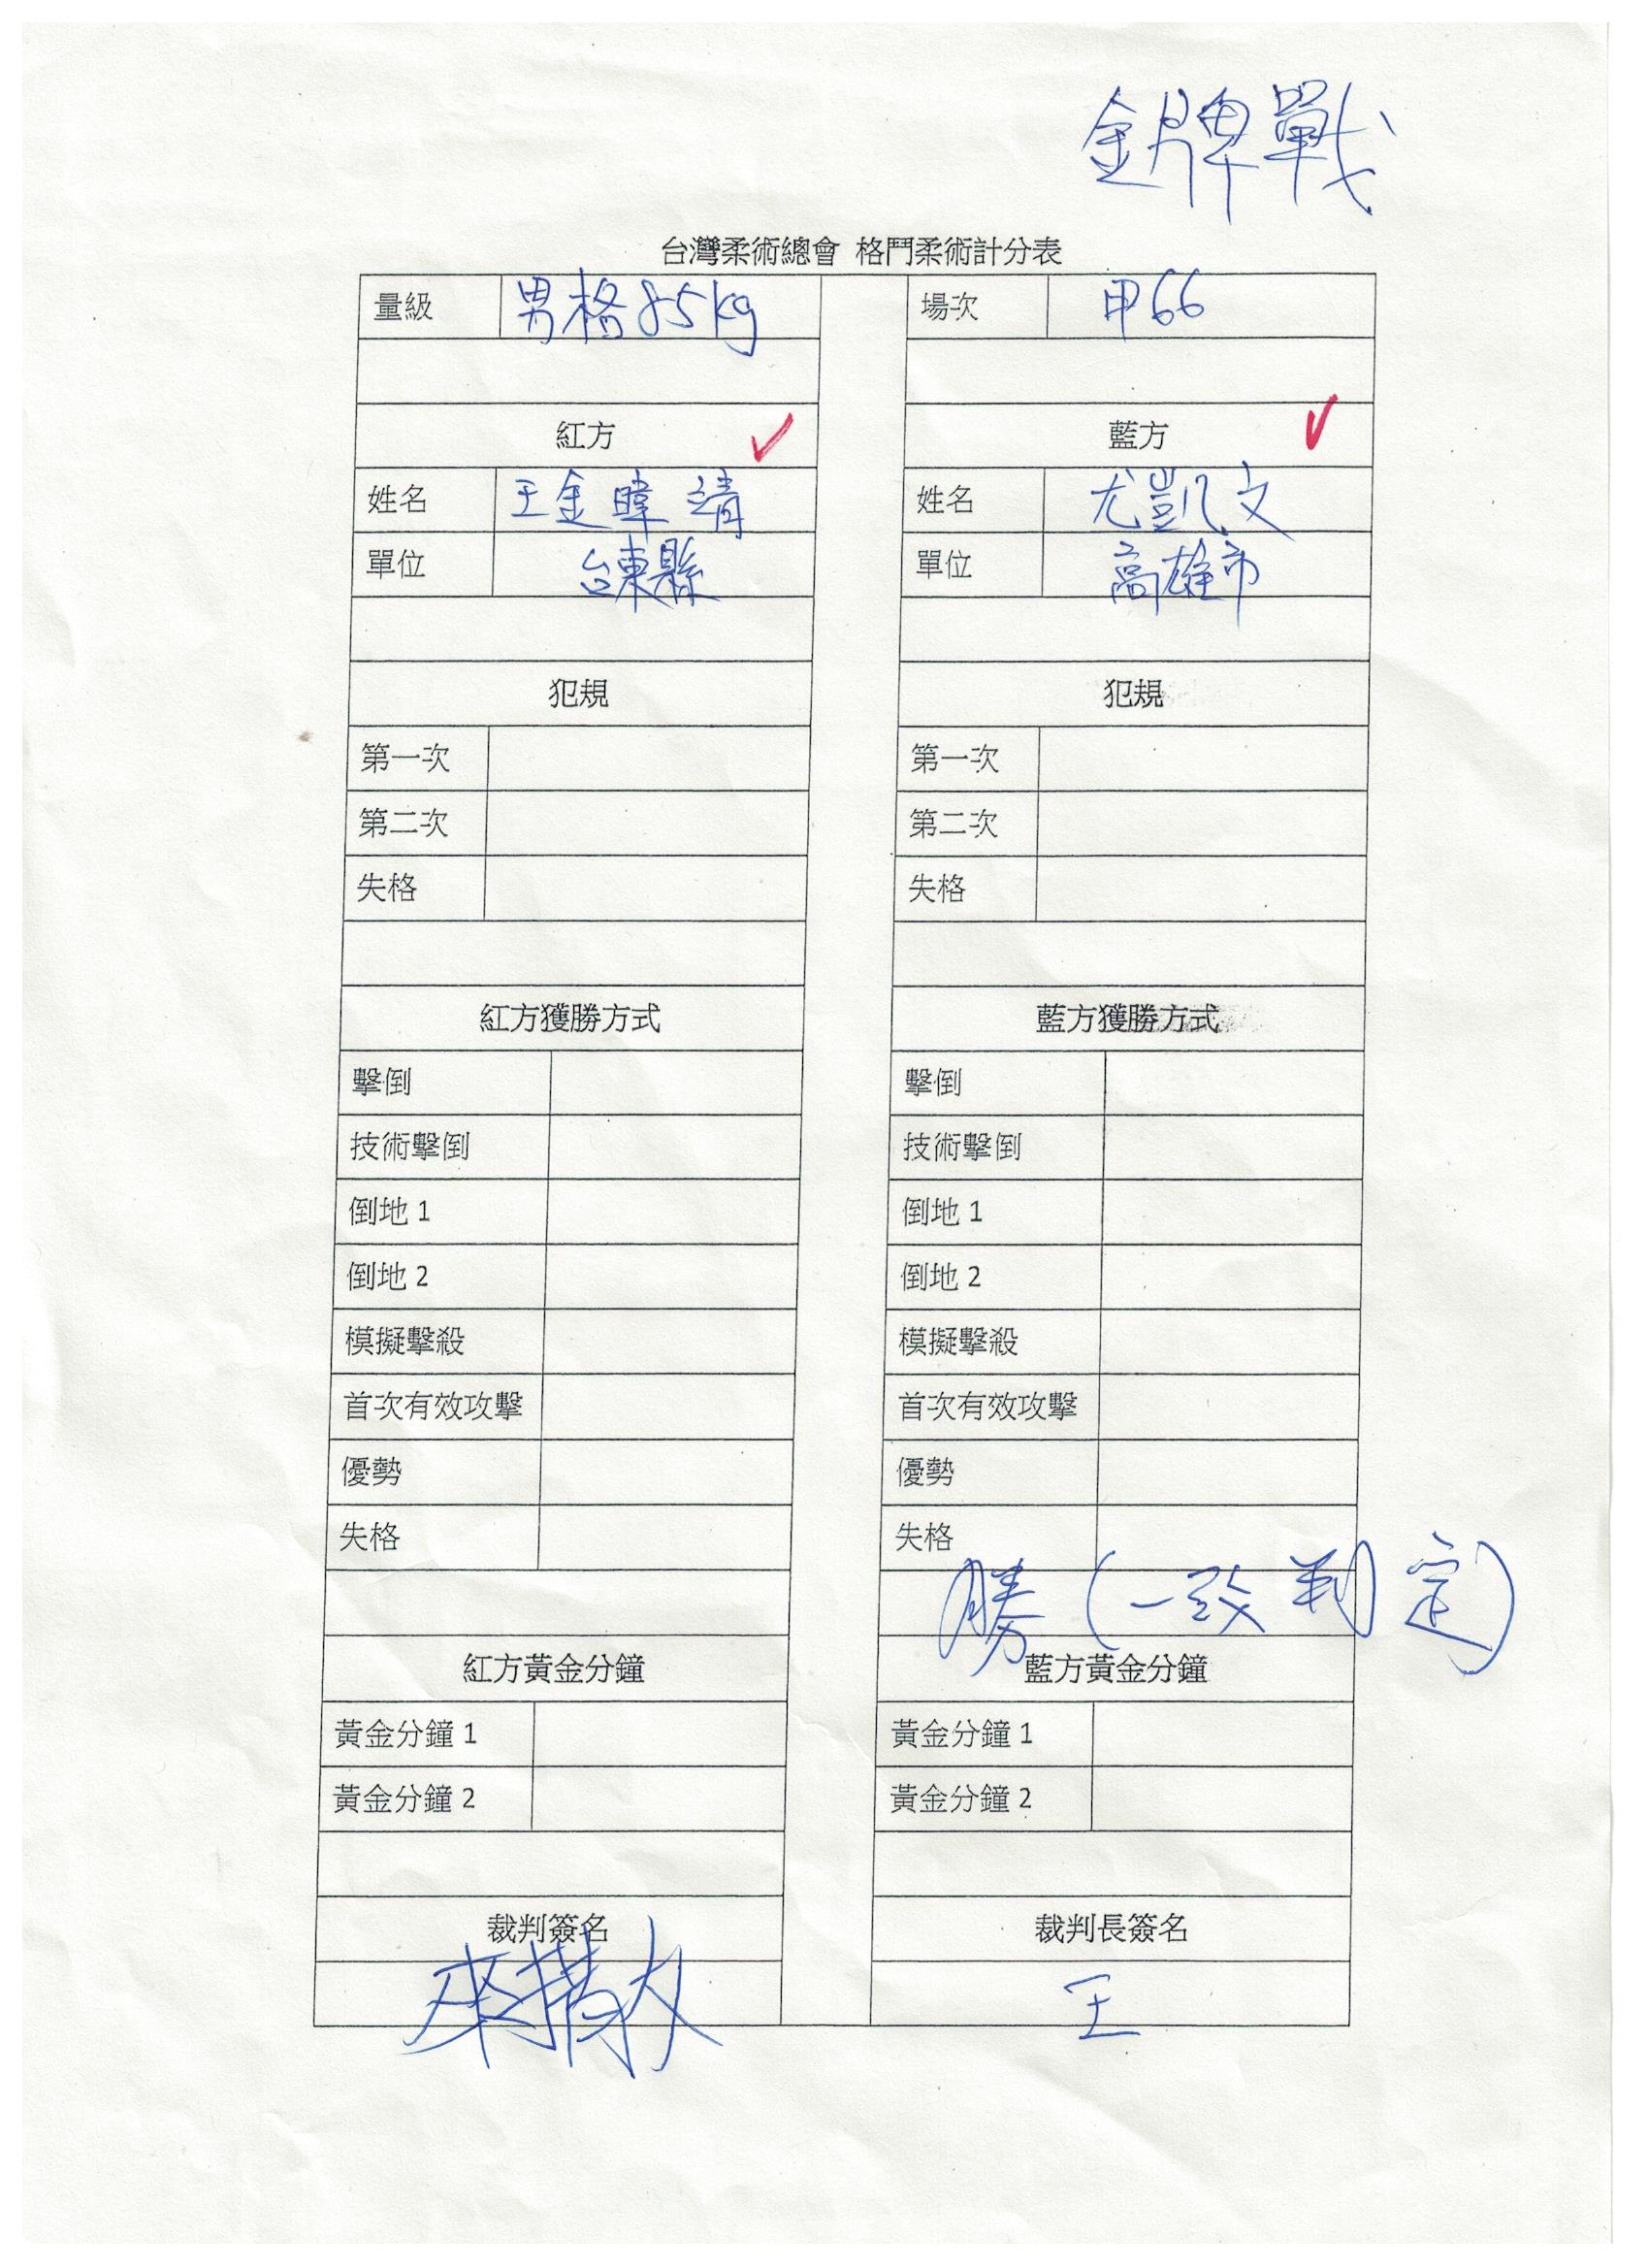 金牌戰
台灣柔術總會 格鬥柔術計分表
量級 男格85kg 場次 甲66
紅方 ✓ 藍方 ✓
姓名 王金暐靖 姓名 尤凱文
單位 台東縣 單位 高雄市
犯規 犯規
第一次 第一次
第二次 第二次
失格 失格
紅方獲勝方式 藍方獲勝方式
擊倒 擊倒
技術擊倒 技術擊倒
倒地 1 倒地 1
倒地 2 倒地 2
模擬擊殺 模擬擊殺
首次有效攻擊 首次有效攻擊
優勢 優勢
失格 失格
勝(一致判定)
紅方黃金分鐘 藍方黃金分鐘
黃金分鐘 1 黃金分鐘 1
黃金分鐘 2 黃金分鐘 2
裁判簽名 裁判長簽名
王